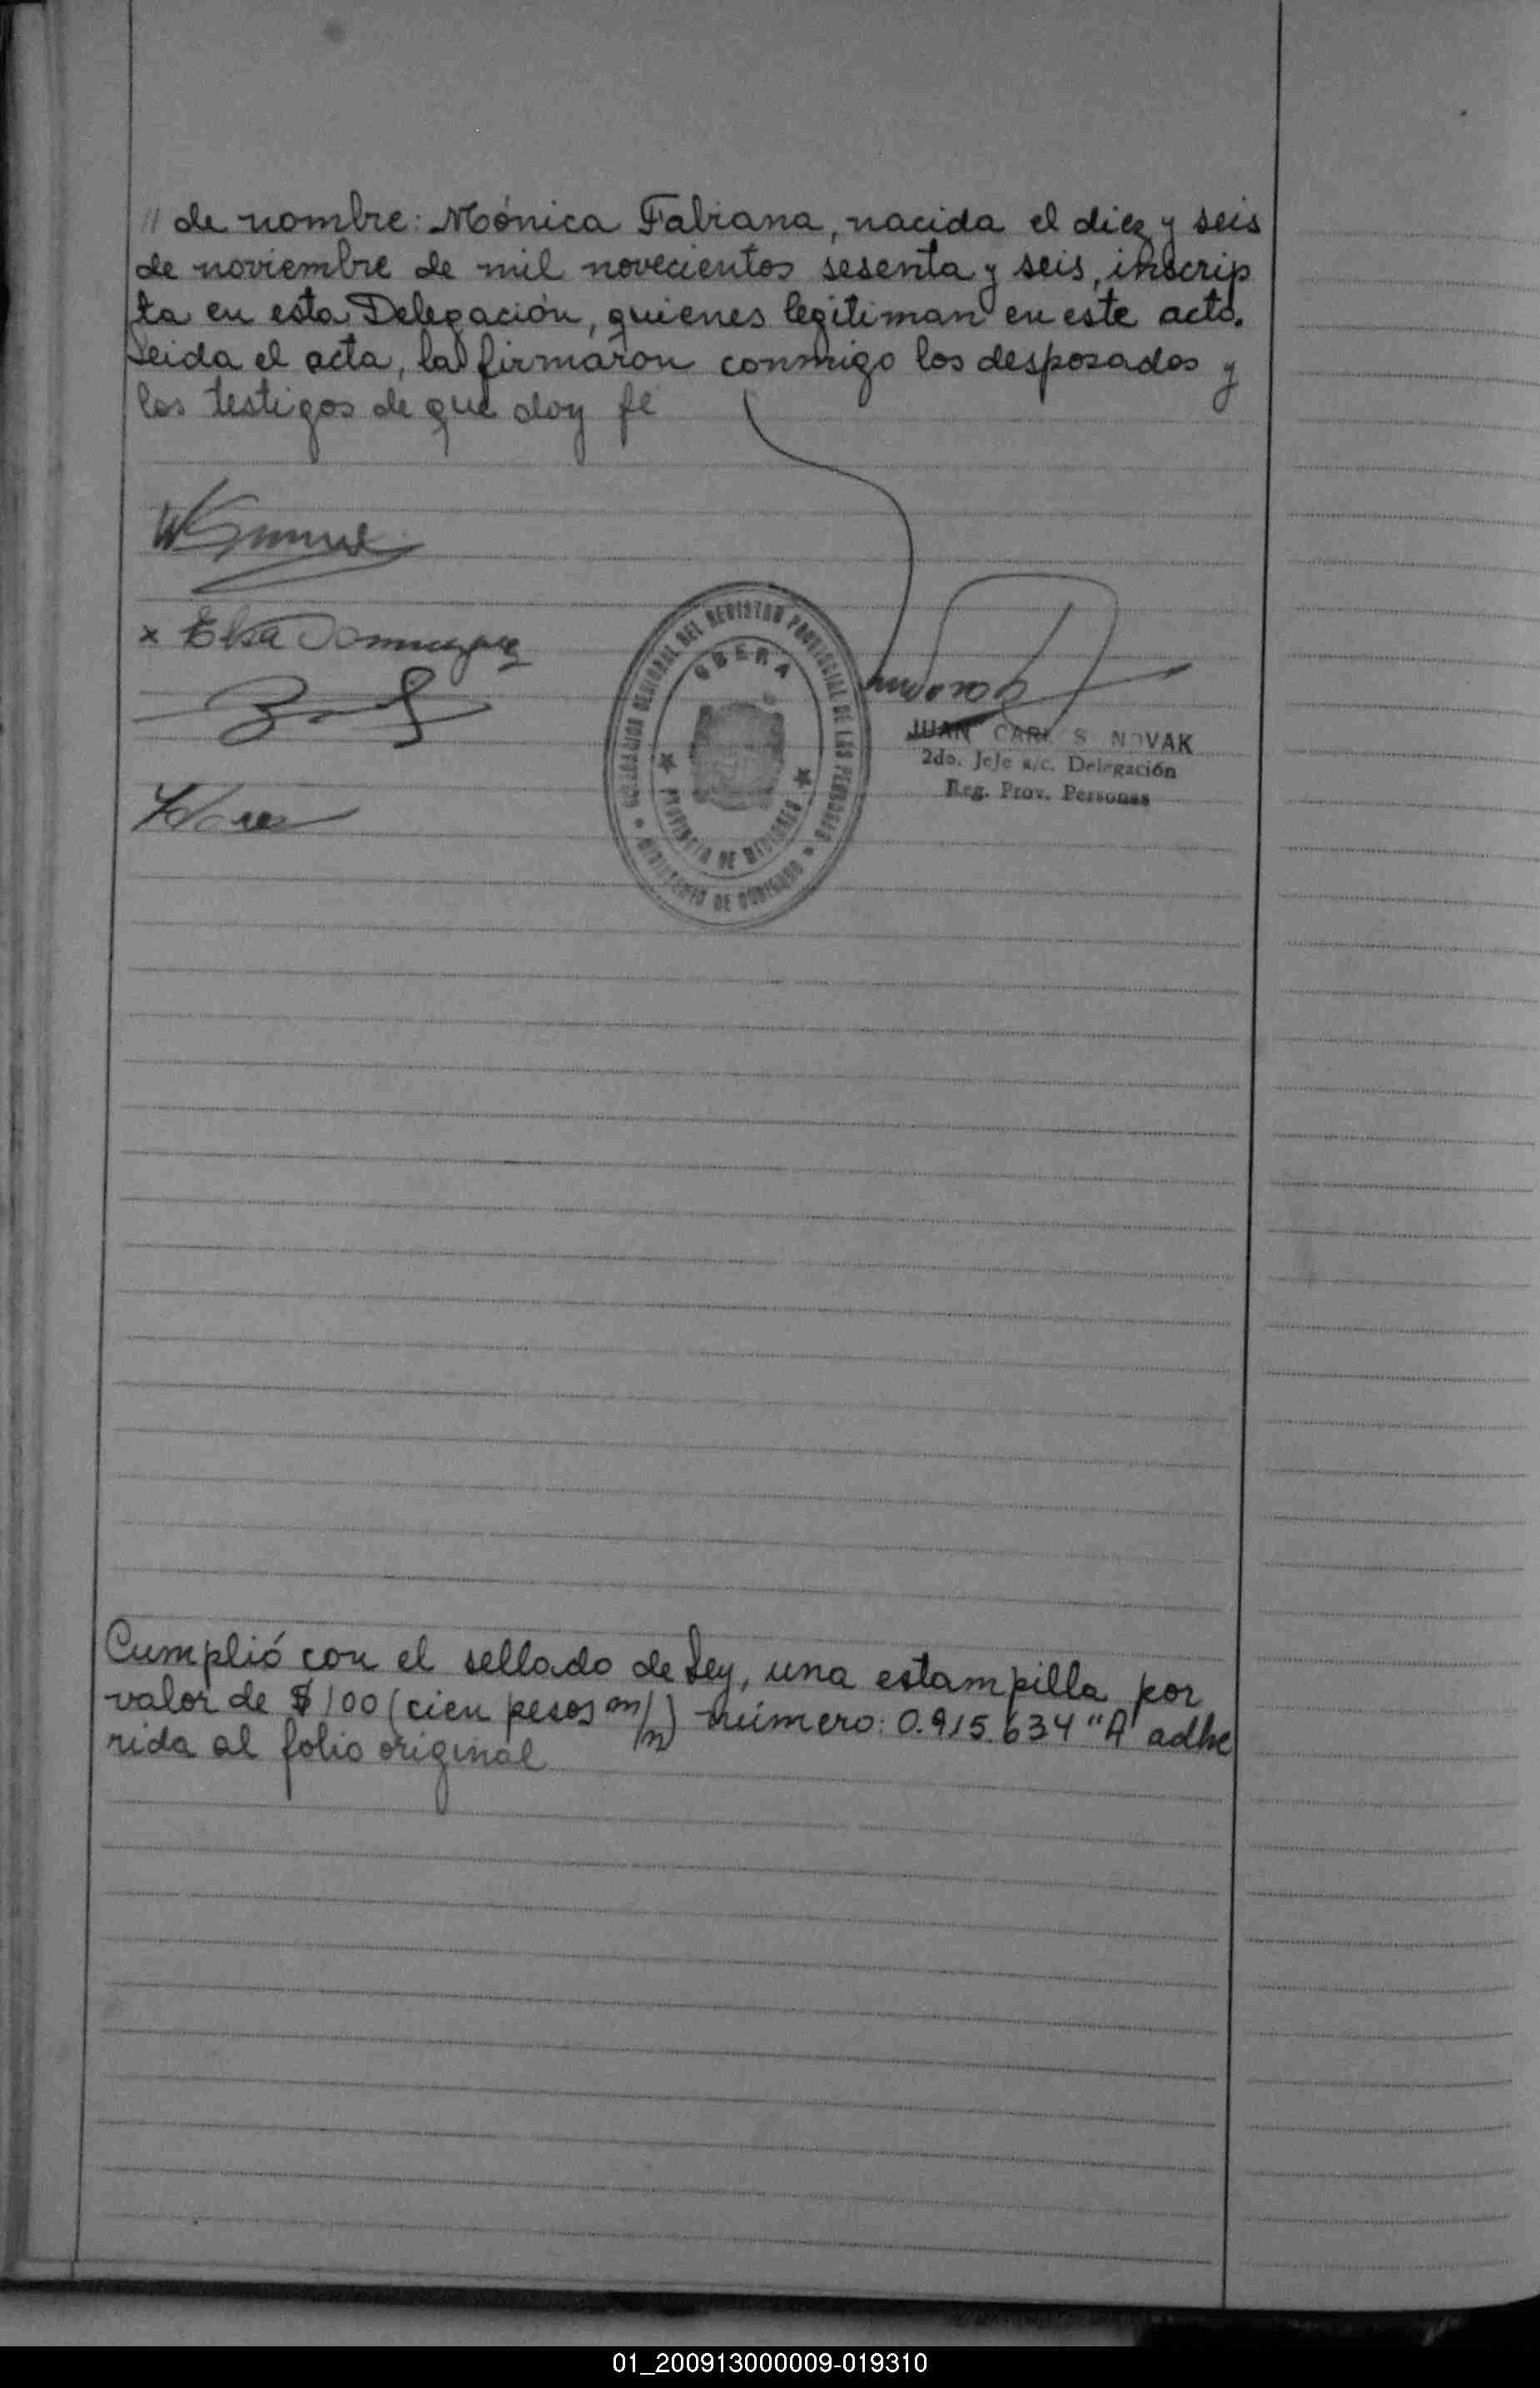 // de nombre: Mónica Fabiana, nacida el diez y seis
de noviembre de mil novecientos sesenta y seis, inscrip
ta en esta Delegación, quienes legitiman en este acto.
Leida el acta, la firmaron conmigo los desposados y
los testigos de que doy fe
x Elsa Dominguez
DELEGACION REGIONAL DEL REGISTRO PROVINCIAL DE LAS PERSONAS
OBERA
PROVINCIA DE MISIONES
MINISTERIO DE GOBIERNO
JUAN CARLOS NOVAK
2do. Jefe a/c. Delegación
Reg. Prov. Personas
Cumplió con el sellado de Ley, una estampilla por
valor de $ 100 (cien pesos m/n) número: 0.915.634 "A" adhe
rida al folio original
01_200913000009-019310